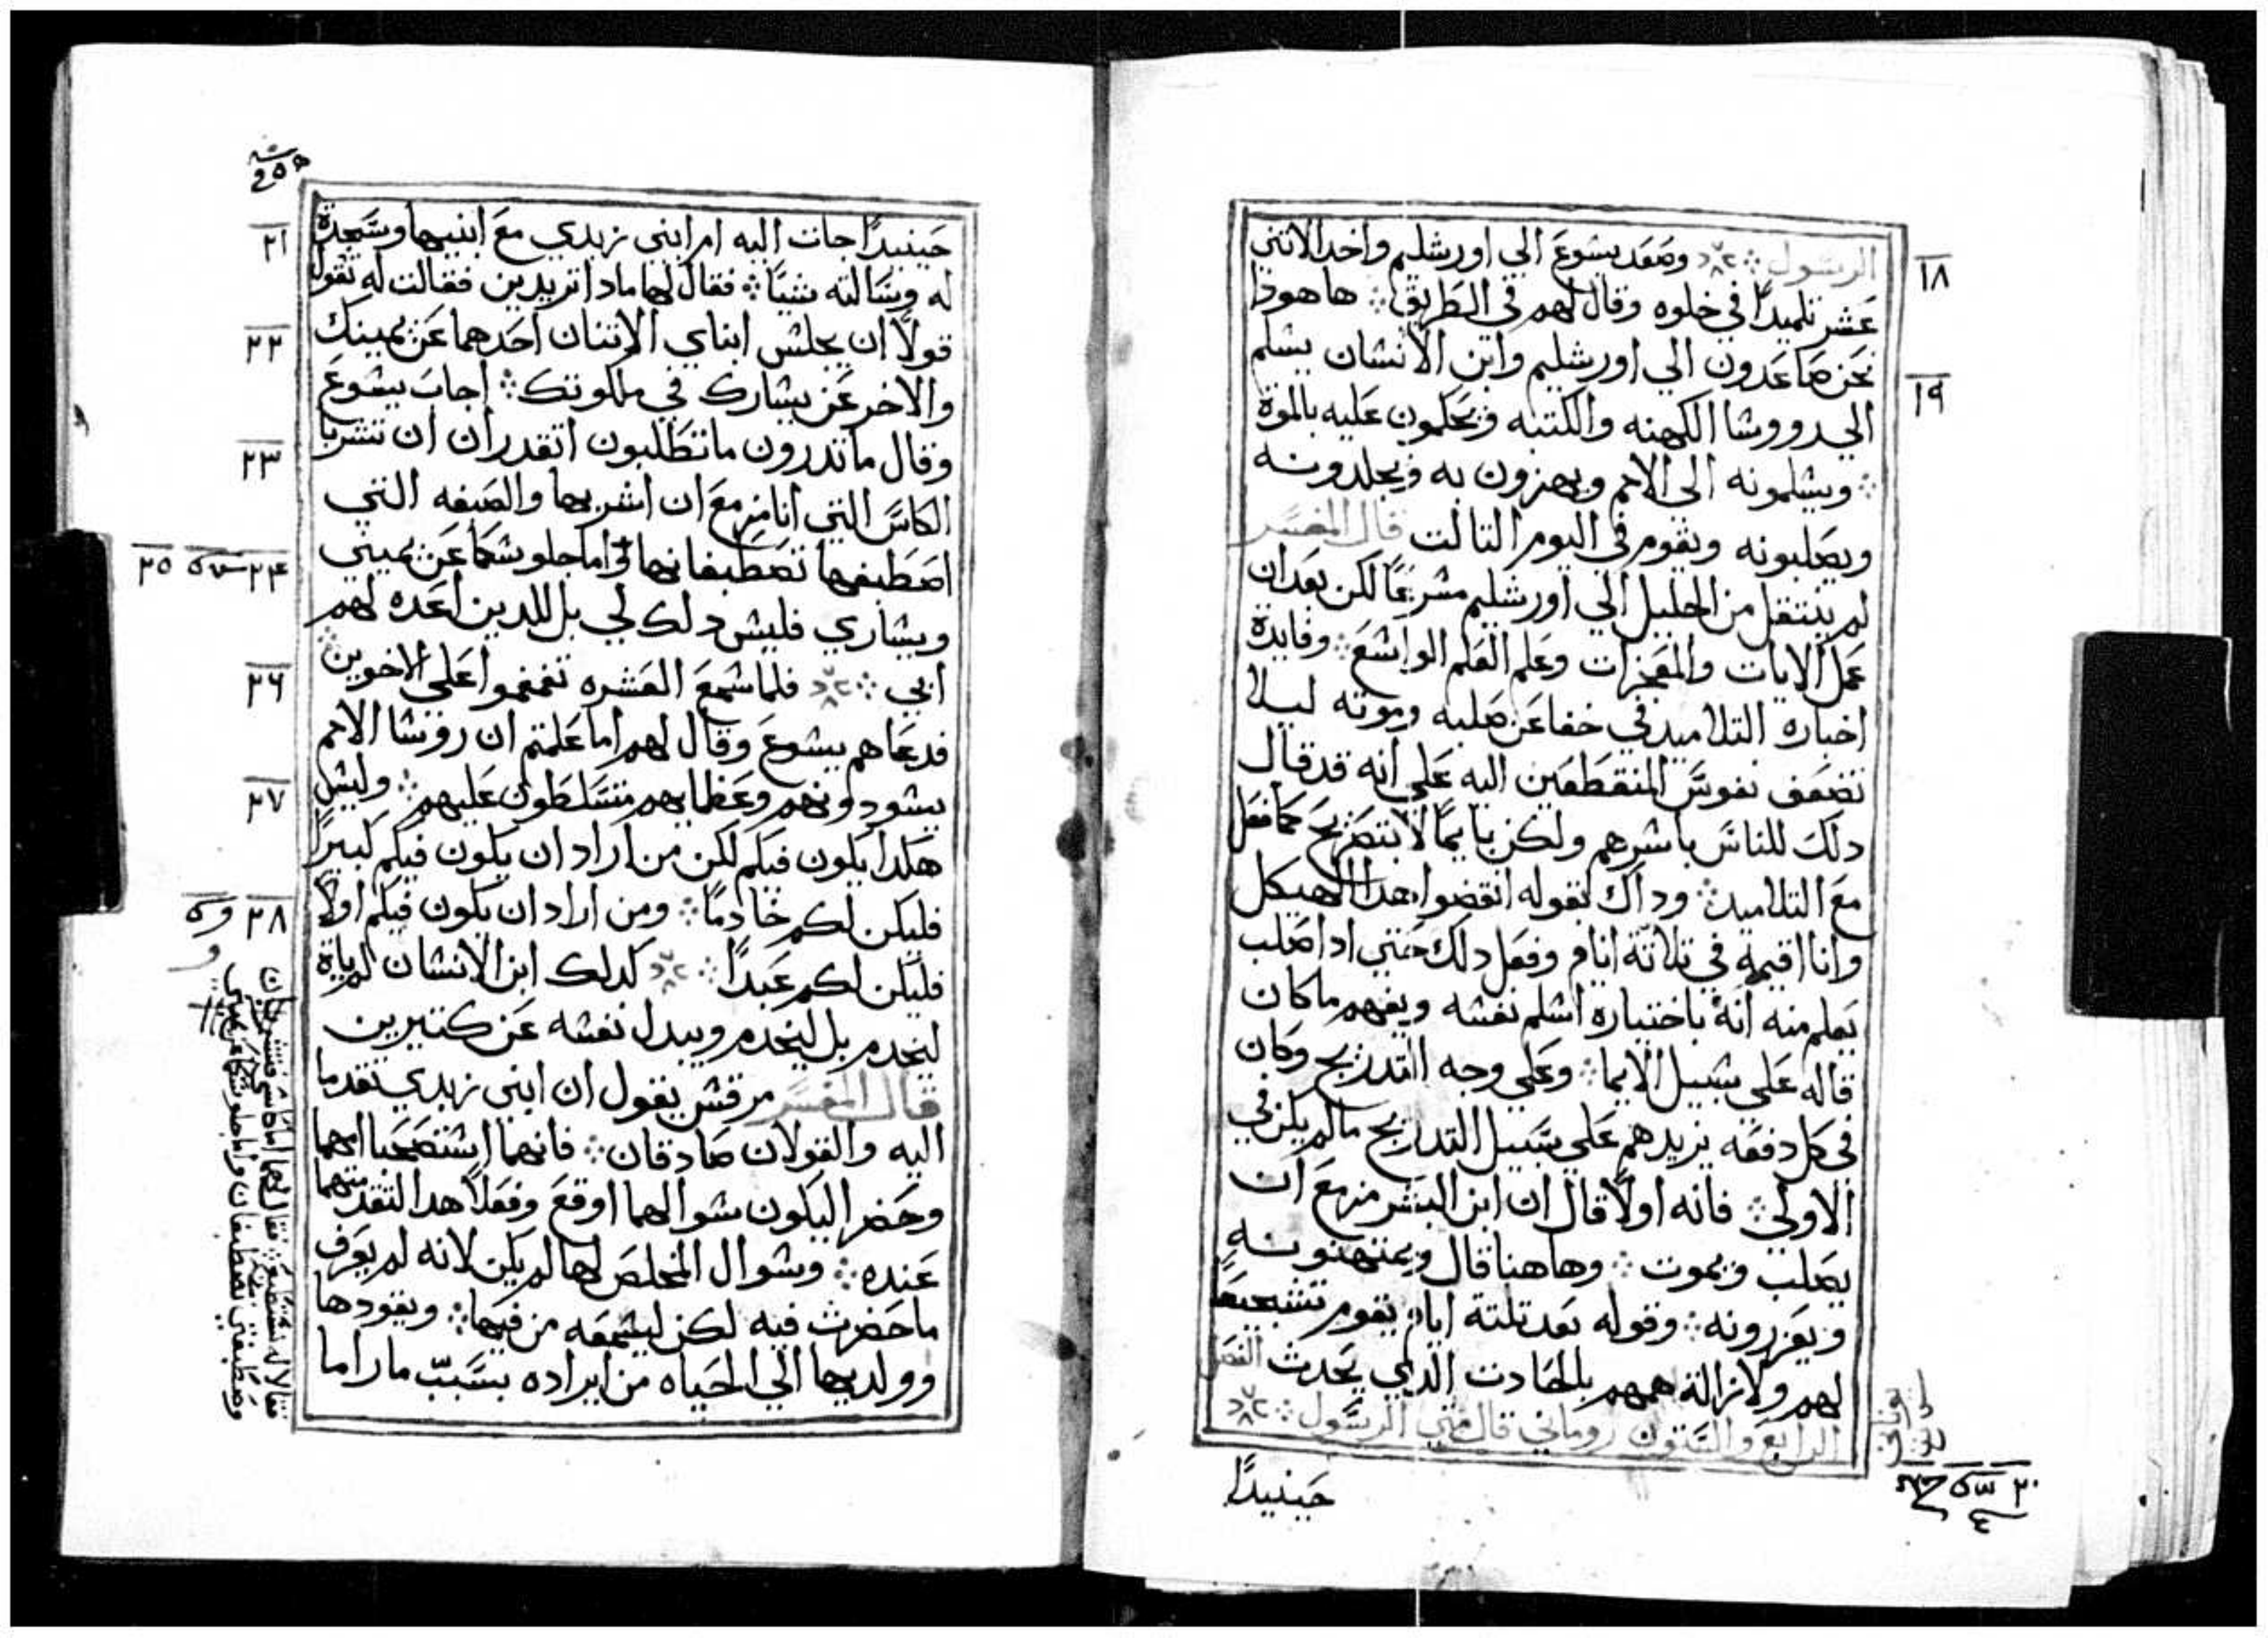 الرسول ܀ وصعد يسوع الي اورشليم واخد الاتني
عشر تلميدًا في خلوه وقال لهم في الطريق ܀ هاهودا
نحن صاعدون الي اورشليم وابن الانسان يسلم
الي رووسا الكهنه والكتبه ويحكمون عليه بالموة
܀ ويسلمونه الى الامم ويهزون به ويجلدونه
ويصلبونه ويقوم في اليوم التالت قال المفسر
لم ينتقل من الجليل الي اورشليم مسرعًا لكن بعد ان
عمل الايات والمعجزات وعلم العلم الواسع ܀ وفايدة
اخباره التلاميد في خفا عن صلبه وموته ليلا
تضعف نفوس المنقطعين اليه علي انه قد قال
دلك للناس باسرهم ولكن بايمًا لا بتصريح كما فعل
مع التلاميد ܀ وداك بقوله انقضوا هدا الهيكل
وانا اقيمه في تلاتة ايام وفعل دلك حتي ادا صلب
يعلم منه انه باختياره اسلم نفسه ويفهم ما كان
قاله علي سبيل الايما ܀ وعلي وجه التدريج وكان
في كل دفعه يزيدهم علي سبيل التدريج ما لم يكن في
الاولي ܀ فانه اولًا قال ان ابن البشر مزمع ان
يصلب ويموت ܀ وهاهنا قال ويمتهنونه
ويعزرونه ܀ وقوله بعد تلتة ايام يقوم تشجيعًا
لهم ولازالة همهم بالحادت الدي يحدث الفصل
الرابع والستون روماني قال متي الرسول ܀
حينيدًا
١٨
١٩
٢٠
حينيدًا جات اليه ام ابني زبدي مع ابنيها وسجدة
له وسالته شيًا ܀ فقال لها مادا تريدين فقالت له تقول
قولًا ان يجلس ابناي الاتنان احدهما عن يمينك
والاخر عن يسارك في ملكوتك ܀ اجاب يسوع
وقال ما تدرون ما تطلبون اتقدران ان تشربا
الكاس التي انا مزمع ان اشربها والصبغه التي
اصطبغها تصطبغانها اما جلوسكما عن يميني
ويساري فليس دلك لي بل للدين اعده لهم
ابي ܀ فلما سمع العشره تغمغموا علي الاخوين
فدعاهم يسوع وقال لهم اما علمتم ان روسا الامم
يسودونهم وعظمايهم متسلطون عليهم ܀ وليس
هكدا يكون فيكم لكن من اراد ان يكون فيكم كبيرًا
فليكن لكم خادمًا ܀ ومن اراد ان يكون فيكم اولًا
فليكن لكم عبدًا ܀ كدلك ابن الانسان لم ياة
ليخدم بل ليخدم ويبدل نفسه عن كتيرين
قال المفسر مرقس يقول ان ابني زبدي تقدما
اليه والقولان صادقان ܀ فانهما استصحبا امهما
وحضرا ليكون سوالهما اوقع وفعلا هدا لتقدمتهما
عنده ܀ وسوال المخلص لها لم يكن لانه لم يعرف
ما حضرت فيه لكن ليسمعه من فيها ܀ ويقودها
وولديها الي الحياه من ايراده بسبب ما راما
٢١
٢٢
٢٣
٢٤ ٢٥
٢٦
٢٧
٢٨